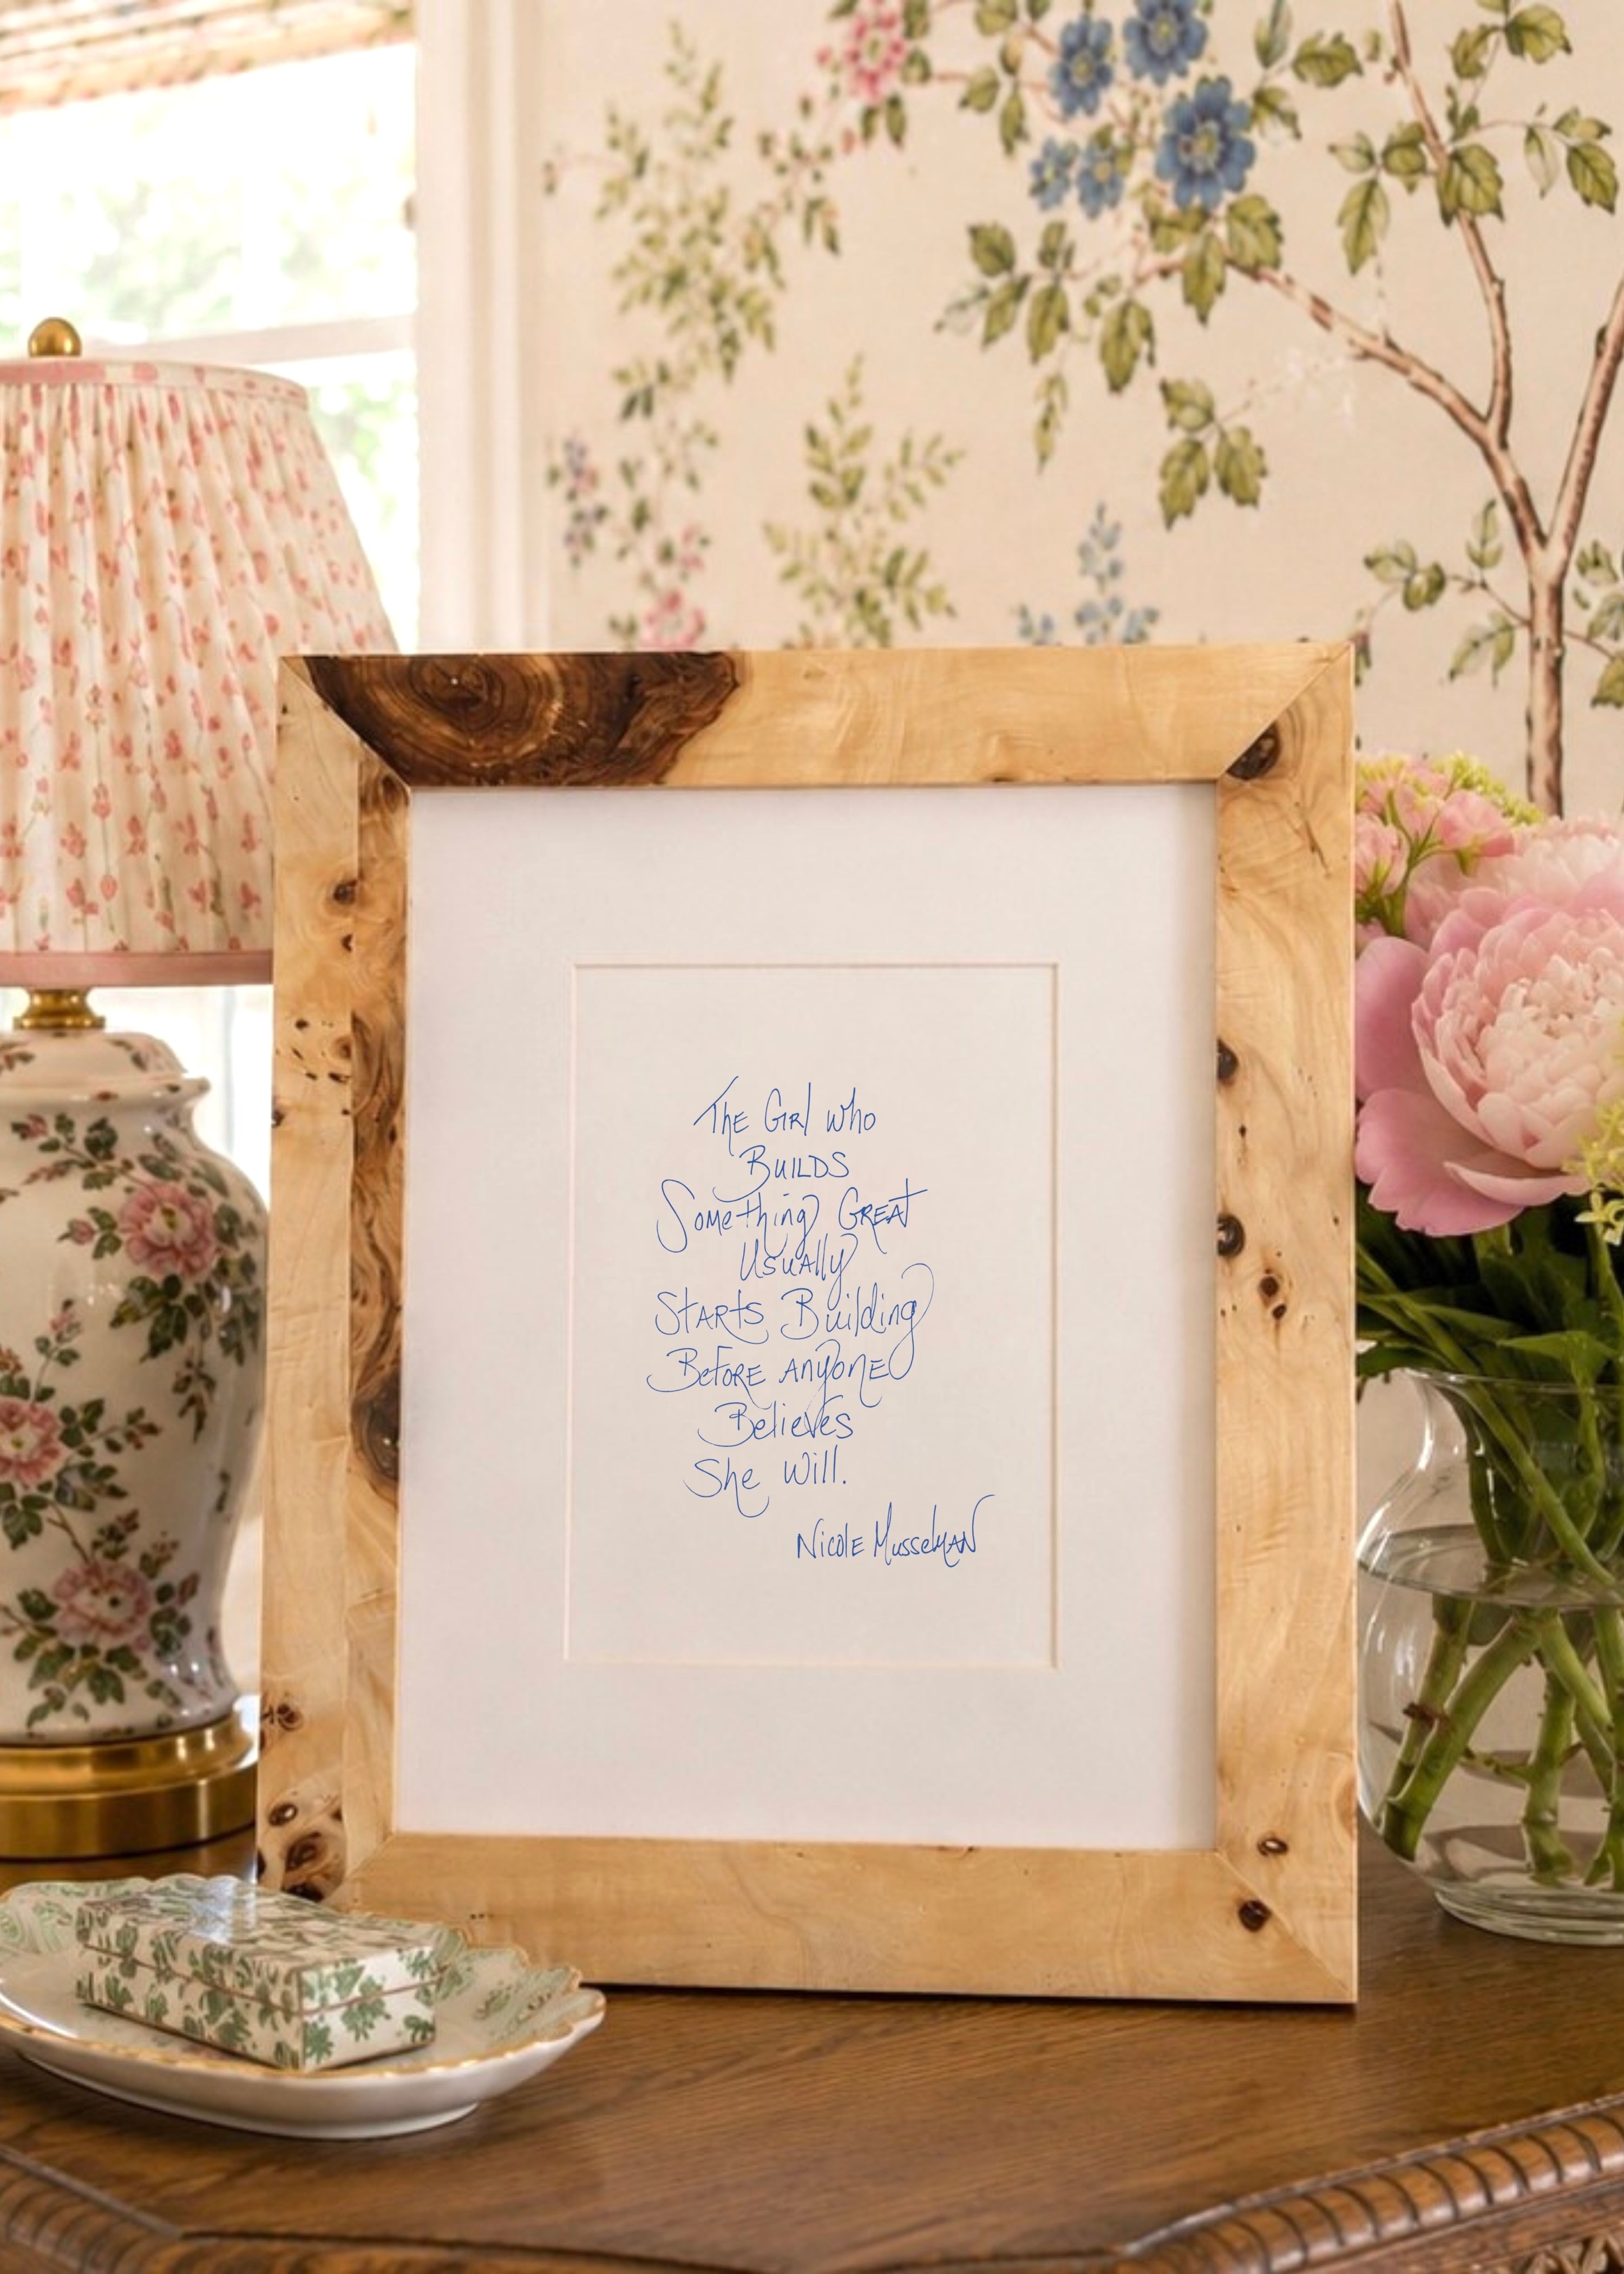 The Girl who
Builds
Something Great
Usually
Starts Building
Before Anyone
Believes
She will.
Nicole Musselman